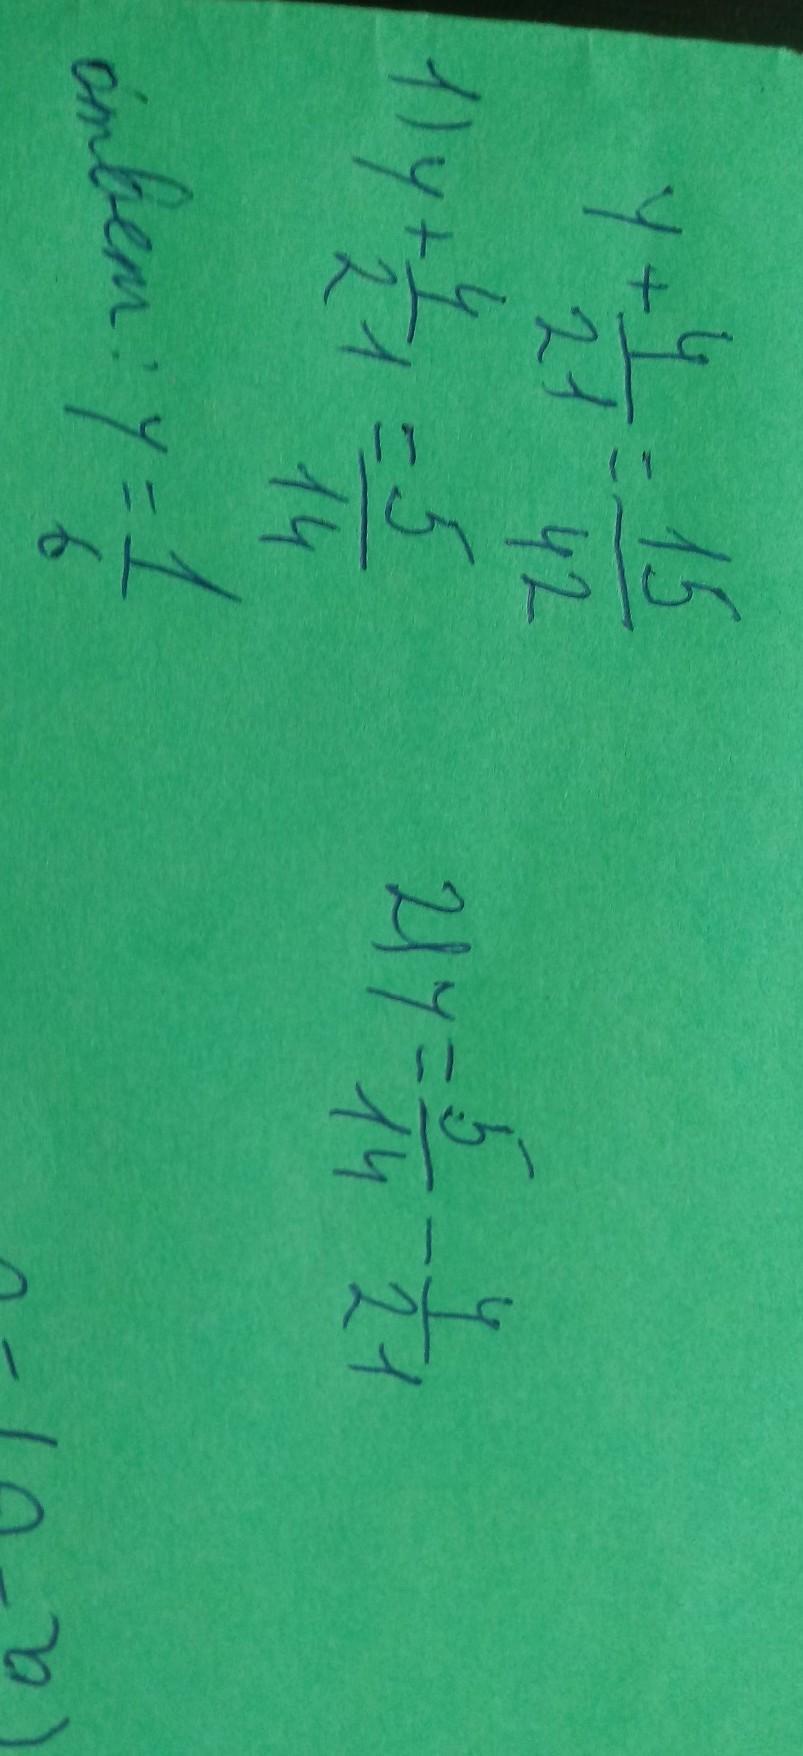 y + 4/21 = 15/42
1) y + 4/21 = 5/14
2) y = 5/14 - 4/21
ответ: y = 1/6